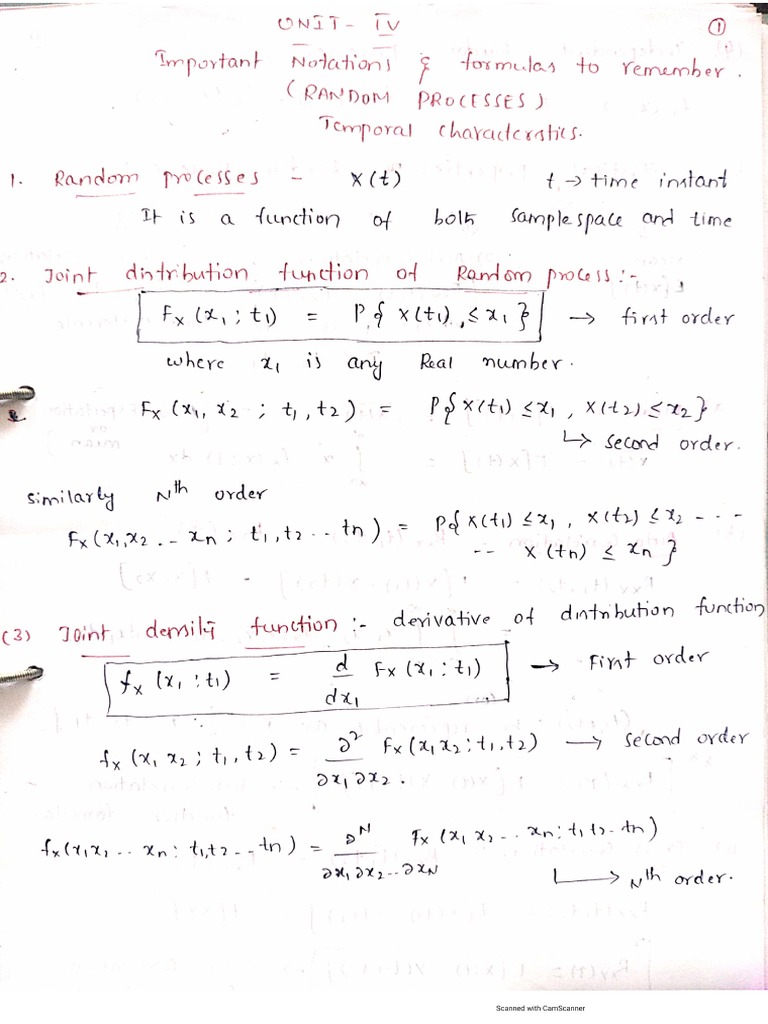 UNIT - IV
①
Important Notations & formulas to remember.
(RANDOM PROCESSES)
Temporal characterstics.
1. Random processes - X(t) t → time instant
It is a function of both sample space and time
2. Joint distribution function of Random process :-
Fx (x1 ; t1) = P{ X(t1) ≤ x1 } → first order
where x1 is any Real number.
Fx (x1, x2 ; t1, t2) = P{ X(t1) ≤ x1 , X(t2) ≤ x2 }
↳ second order.
similarly Nth order
Fx (x1, x2 .. xn ; t1, t2 .. tn) = P{ X(t1) ≤ x1 , X(t2) ≤ x2 - - -
-- X(tn) ≤ xn }
(3) Joint density function :- derivative of distribution function
fx (x1 ; t1) = d/dx1 Fx (x1 ; t1) → First order
fx (x1 x2 ; t1, t2) = ∂²/∂x1 ∂x2 . Fx (x1 x2 ; t1, t2) → second order
fx (x1 x2 .. xn ; t1, t2 .. tn) = ∂N/∂x1 ∂x2 .. ∂xN Fx (x1 x2 .. xn ; t1 t2 .. tn)
↳ Nth order.
Scanned with CamScanner